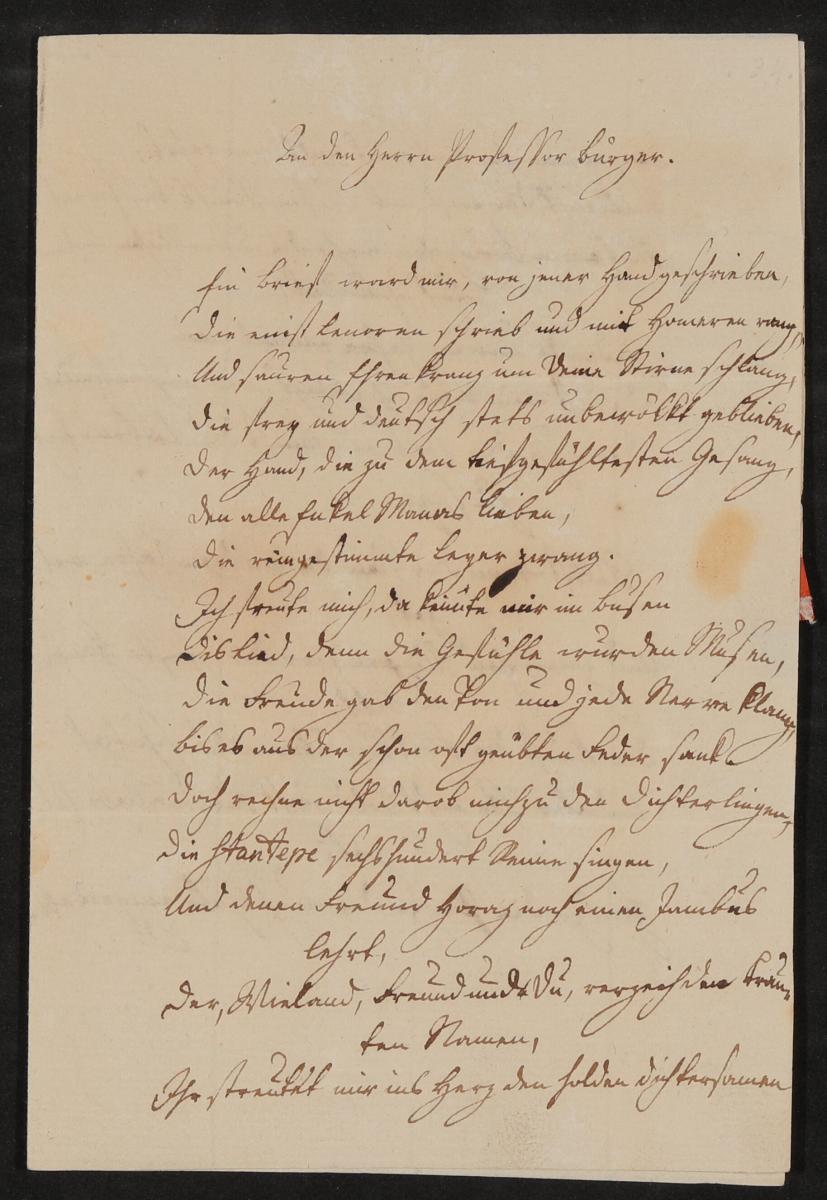 An den Herrn Professor Bürger.
Ein Brief ward mir, von jener Hand geschrieben,
Die einst Lenoren schrieb und mit Homeren rang,
Und sauren Ehrenkranz um Deine Stirne schlang,
Die frey und deutsch stets unbewölkt geblieben,
Der Hand, die zu dem tiefgefühltesten Gesang,
Den alle Enkel Manas lieben,
Die reingestimmte Leyer zwang.
Ich freute mich, da keimte mir im Busen
Dis Lied, denn die Gefühle wurden Musen,
Die Freude gab den Ton und jede Nerve Klang,
bis es aus der schon oft geübten Feder sank.
Doch rechne nicht darob mich zu den Dichterlingen,
Die stantepe sechshundert Reime singen,
Und denen Freund Horaz noch einen Jambus
lehrt,
Der, Wieland, Freund und Du, verzeih den trau-
ten Namen,
Ihr streutet mir ins Herz den holden Dichtersamen